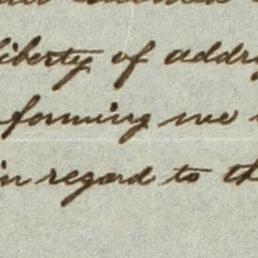 liberty of addr
forming me
in regard to th